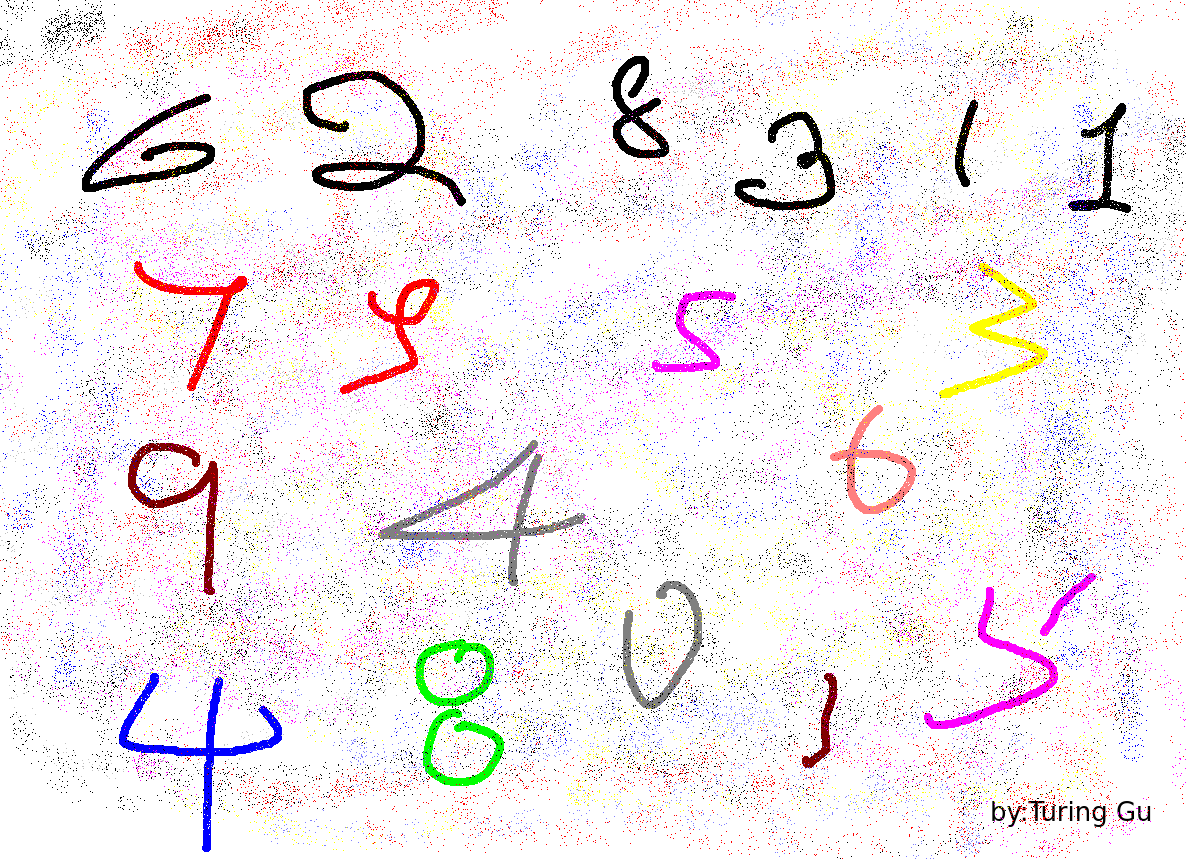 6 2 8 3 1 1
7 9 5 3
9 4 6
4 8 0 1 5
by:Turing Gu